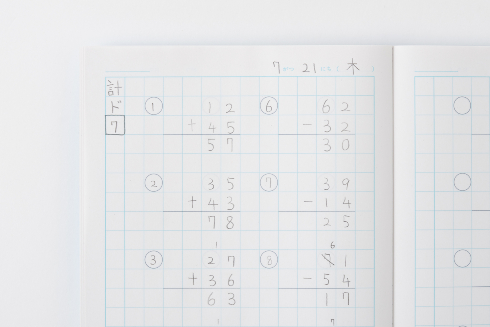 7 21 木
計
ド
7
① 12
+ 45
57
② 35
+ 43
78
③ 1
27
+ 36
63
⑥ 62
- 32
30
⑦ 39
- 14
25
⑧ 6
71
- 54
17